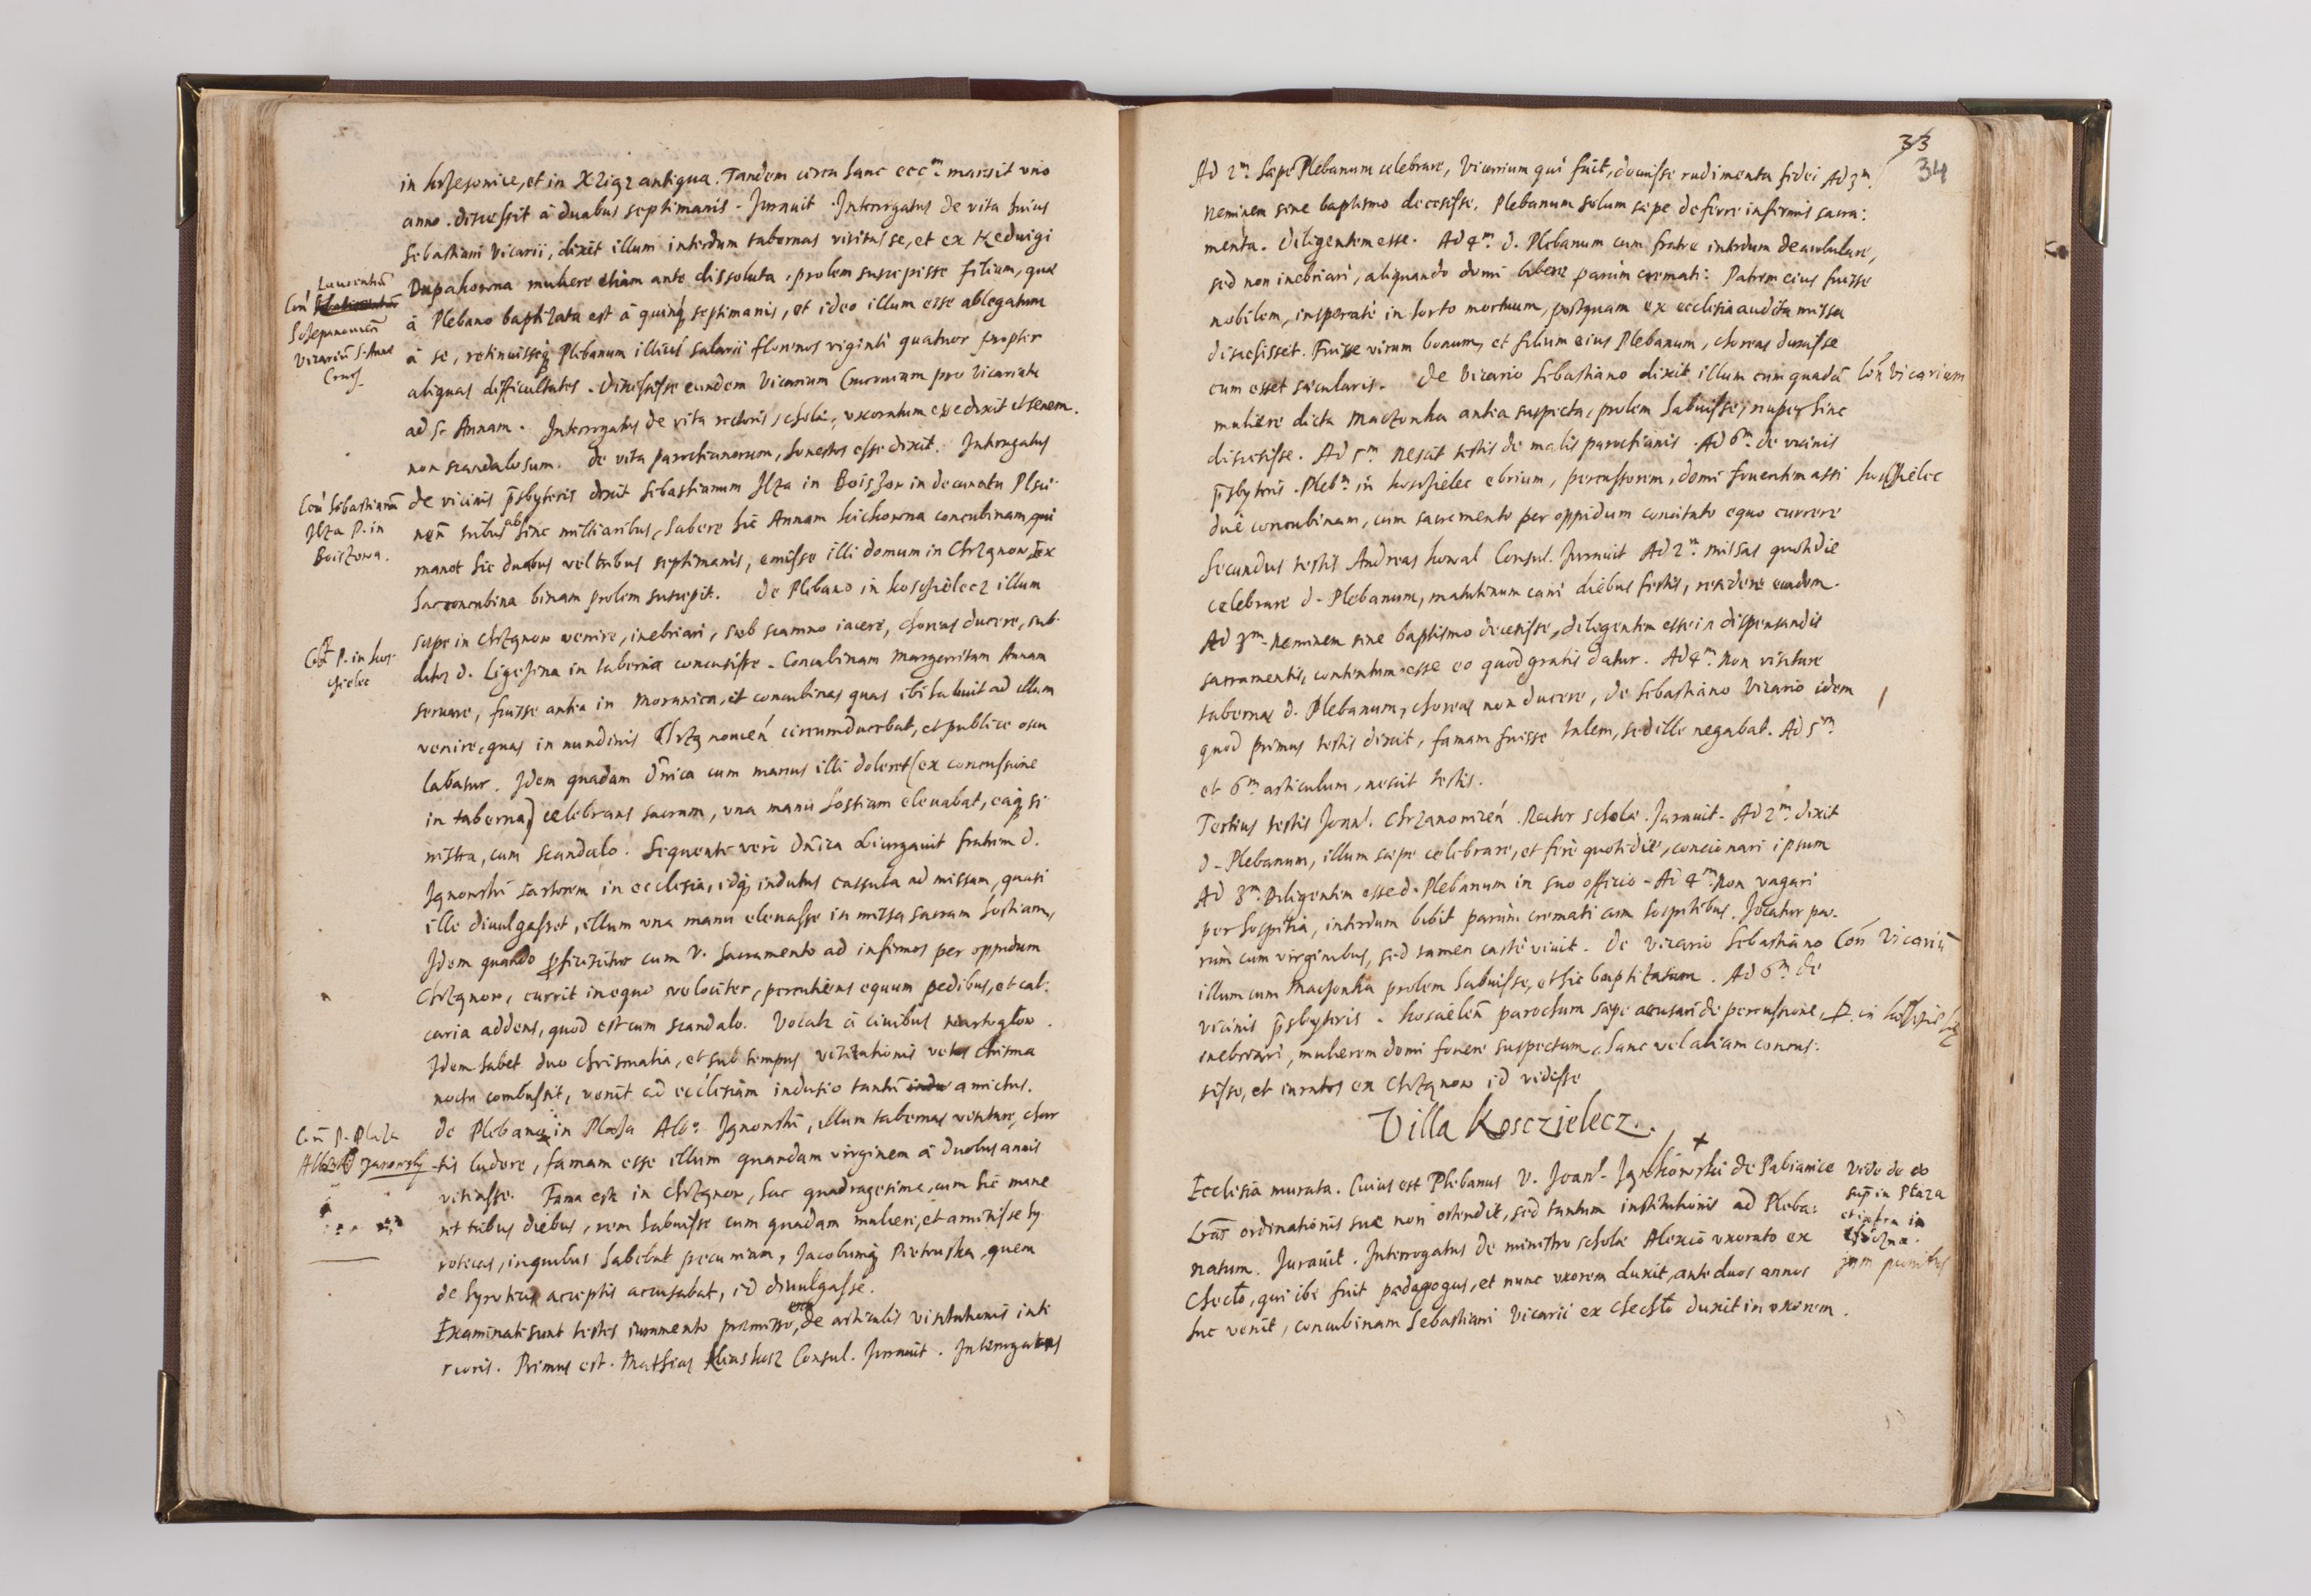 in krzesowice, et in Xziąz antiqua. Tandem circa hanc ecc^m mansit uno
anno. discessit à duabus septimanis. Jurauit. Interrogatus de vita huius
Sebastiani Vicarii, dixit illum interdum tabernas visitasse, et ex Hedwigi
Laurentiū
Dupakowna muliere etiam ante dissoluta, prolem suscepisse filium, quæ
Con̄
Vicariū S. Annæ
à Plebano baptizata est à quinq septimanis, et ideo illum esse ablegatum
à se, retinuisseq Plebanum illius salarii florenos viginti quatuor propter
aliquas difficultates. Discessisse eundem Vicarium Cracouiam pro Vicariatu
ad S. Annam. Interrogatus de vita rectoris scholæ, uxoratum esse dixit et senem.
non scandalosum. De vita parochianorum, honestos esse dixit. Interrogatus
Con̄ Sebastianū
Ilza P. in
Boiszowa.
de vicinis p̄sbyteris dixit Sebastianum Ilza in Boiszow in decanatu Plsci-
nen̄ tribus ab hinc milliaribus, habere hic Annam kichowna concubinam, qui
manet hic duabus vel tribus septimanis, emisse illi domum in Chrzanow, Ex
hac concubina binam prolem suscepit. De Plebano in kosczielecz illum
Con̄ P. in kos-
cielec
sæpe in Chrzanow venire, inebriari, sub scamno iacere, choreas ducere, sub-
ditos d. Ligęzina in taberna concussisse. Concubinam Margaritam Annam
seruare, fuisse antea in Morawica, et concubinas quas ibi habuit ad illum
venire, quas in nundinis Chrzanouień circumducebat, et publice oscu
labatur. Idem quadam Dn̄ica cum manus illi doleret (ex concussione
in taberna) celebrans sacrum, una manu hostiam eleuabat, eaq si-
nistra, cum scandalo. Sequente verò Dn̄ica obiurgauit fratrem d.
Jgnowski sartorem in ecclesia, idq indutus cassula ad missam, quasi
ille diuulgasset, illum una manu eleuasse in missa sacram hostiam,
Idem quando proficiscitur cum V. Sacramento ad infirmos per oppidum
Chrzanow, currit in equo velociter, percutiens equum pedibus, et cal-
caria addens, quod est cum scandalo. Vocatur à ciuibus
Idem habet duo chrismatia, et sub tempus visitationis vetus chrisma
noctu combussit, venit ad ecclesiam indusio tantū indu amictus.
Con̄ P. Plaza
De Plebano in Plaza Alb^o Jgnowski, illum tabernas visitare, char
tis ludere, famam esse illum quandam virginem à duobus annis
vitiasse. Fama est in Chrzanow, hac quadragesima, cum hic mane
ret tribus diebus, rem habuisse cum quadam muliere, et amisisse hy-
rotecas, in quibus habebat pecuniam, Jacobumq Pietruska, quem
de hyrotecis acceptis accusabat, id diuulgasse.
Examinati sunt testes iuramento præmisso, de articulis visitationis inte
rioris. Primus est. Mathias Consul. Jurauit. Interrogatus
33
34
Ad 2^m. Sæpe Plebanum celebrare, Vicarium qui fuit, docuisse rudimenta fidei Ad 3^m.
Neminem sine baptismo decessisse, Plebanum solum sæpe deferre infirmis sacra-
menta. Diligentem esse. Ad 4^m. d. Plebanum cum fratre interdum deambulare,
sed non inebriari, aliquando domi bibere parum cremati: Patrem eius fuisse
nobilem, insperatè in horto mortuum, postquam ex ecclesia audita missa
discessisset. Fuisse virum bonum, et filium eius Plebanum, choreas duxisse
cum esset sæcularis. De Vicario Sebastiano dixit illum cum quadā
Con̄ Vicarium
muliere dicta Maczonka antea suspecta, prolem habuisse, nuper hinc
discessisse. Ad 5^m Nescit testis de malis parochianis. Ad 6^m. de vicinis
p̄sbyteris. Pleb^m in kosczielec ebrium, percussorem, domi fouentem assi
kosczielec
duè concubinam, cum sacramento per oppidum concitato equo currere
Secundus testis Andreas kowal Consul. Jurauit Ad 2^m. Missas quotidie
celebrare d. Plebanum, matutinum cani diebus festis, residere eundem.
Ad 3^m. Neminem sine baptismo decessisse, diligentem esse in dispensandis
sacramentis, contentum esse eo quod gratis datur. Ad 4^m. Non visitare
tabernas d. Plebanum, choreas non ducere, de Sebastiano Vicario idem
quod primus testis dixit, famam fuisse talem, sed ille negabat. Ad 5^m
et 6^m articulum, nescit testis.
Tertius testis Joan̄. Chrzanouień. Rector scholæ. Jurauit. Ad 2^m. dixit
d. Plebanum, illum sæpe celebrare, et ferè quotidiè, concionari ipsum
Ad 3^m. Diligentem esse d. Plebanum in suo officio. Ad 4^m. Non vagari
per hospitia, interdum bibit parum cremati cum hospitibus. Jocatur pa-
rum cum virginibus, sed tamen castè viuit. De Vicario Sebastiano
Con̄ Vicariū
illum cum Maczonka prolem habuisse, et hic baptizatam. Ad 6^m. de
vicinis p̄sbyteris. koscielen̄ parochum sæpe accusari de percussione,
P. in
inebriari, mulierem domi fouere suspectam, hanc vel aliam concus-
sisse, et iuratos ex Chrzanow id vidisse
Villa Koscielecz.
Ecclesia murata. Cuius est Plebanus V. Joan̄. Jgnkowski de Pabianice
Vide de eo
sup̄ in Plaza
et infra in
jam punitus
Lrās ordinationis suæ non ostendit, sed tantum institutionis ad Pleba-
natum. Jurauit. Interrogatus de ministro scholæ Alexio uxorato ex
Chechło, qui ibi fuit pædagogus, et nunc uxorem duxit, ante duos annos
huc venit, concubinam Sebastiani Vicarii ex Chechło duxit in uxorem.